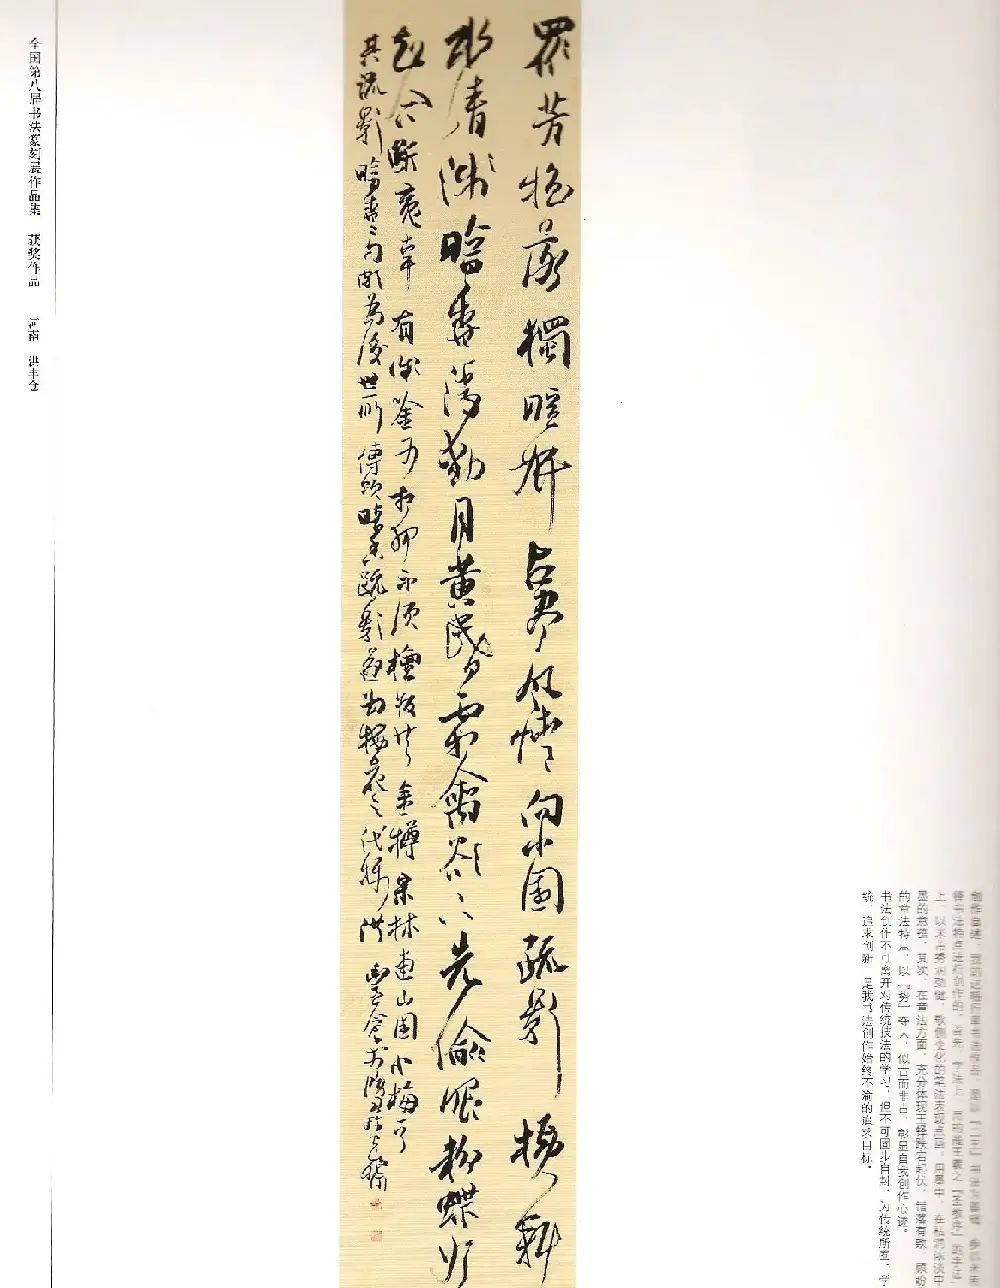 创作自述：我的这幅行草书法作品，是以『二王』书法为基调，参以米芾
铎书法特点进行创作的。首先，字法上，用的是王羲之『圣教序』的字法
上，以米芾劲健，欹侧变化的笔法表现点画。用墨中，在枯润浓淡中
墨的意蕴。其次，在章法方面，充分体现王铎跌宕起伏、错落有致、顾盼
的章法特点，以『势』夺人，似古而非古，彰显自我创作心迹。
书法创作不可离开对传统技法的学习，但不可固步自封，为传统所囿，学
统，追求创新，是我书法创作始终不渝的追求目标。
眾芳搖落獨暄妍占尽风情向小園疏影横斜
水清淺暗香浮動月黄昏霜禽欲下先偷眼粉蝶如
知合断魂幸有微吟可相狎不须檀板共金樽宋林逋山園小梅
其疏影暗香之句颇为後世所傳頌暗香疏影遂为梅花之代稱洪豐倉書於
全国第八届书法篆刻展作品集 获奖作品 河南 洪丰仓